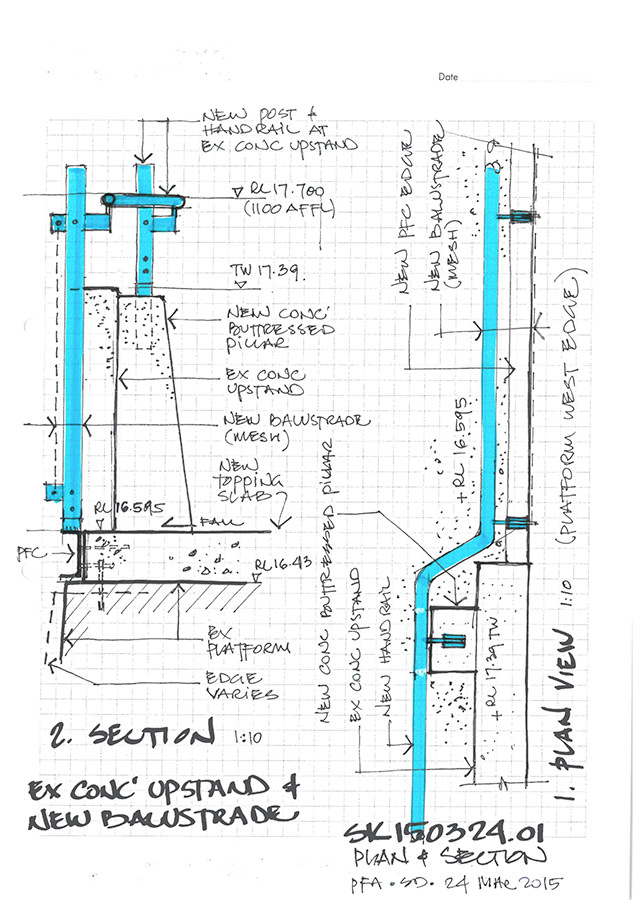 Date
NEW POST &
HANDRAIL AT
EX CONC UPSTAND
RL 17.700
(1100 AFFL)
TW 17.39.
NEW CONC'
BUTTRESSED
PILLAR
EX CONC
UPSTAND
NEW BALUSTRADE
(MESH)
NEW
TOPPING
SLAB
RL 16.595
FALL
PFC
RL 16.43
EX
PLATFORM
EDGE
VARIES
2. SECTION 1:10
EX CONC' UPSTAND &
NEW BALUSTRADE
NEW PFC EDGE
NEW BALUSTRADE
(MESH)
+RL 16.595
NEW CONC BUTTRESSED PILLAR
EX CONC UPSTAND
NEW HANDRAIL
+RL 17.39 TW
1. PLAN VIEW 1:10 (PLATFORM WEST EDGE)
SK150324.01
PLAN & SECTION
PFA · SD · 24 MAR 2015